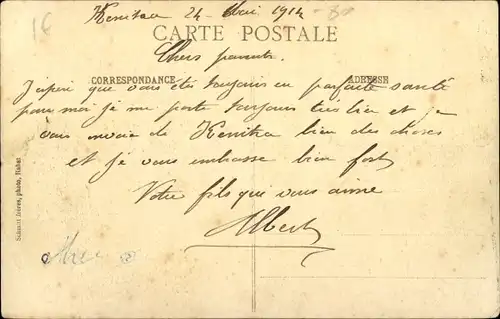 1€
Kenitra 24 Mai 1914
CARTE POSTALE
Chers parents.
CORRESPONDANCE ADRESSE
J'espère que vous êtes toujours en parfaite santé
pour moi je me porte toujours très bien et je
vous envoie de Kenitra bien des choses
et je vous embrasse bien fort
Votre fils que vous aime
Albert
Schmitt frères, photo, Rabat